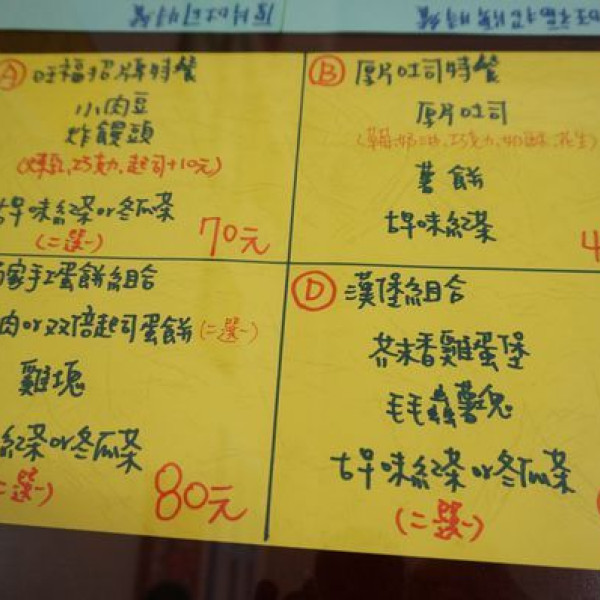 A 旺福招牌特餐
小肉豆
炸饅頭
巧克力、起司+10元)
早味紅茶or冬瓜茶
(二選一)
70元
B 厚片吐司特餐
厚片吐司
(草莓、奶油、巧克力、奶酥、花生)
薯餅
古早味紅茶
4
家手工蛋餅組合
肉or双倍起司蛋餅(二選一)
雞塊
紅茶or冬瓜茶
二選一)
80元
D 漢堡組合
芥末香雞蛋堡
毛毛蟲薯塊
古早味紅茶or冬瓜茶
(二選一)